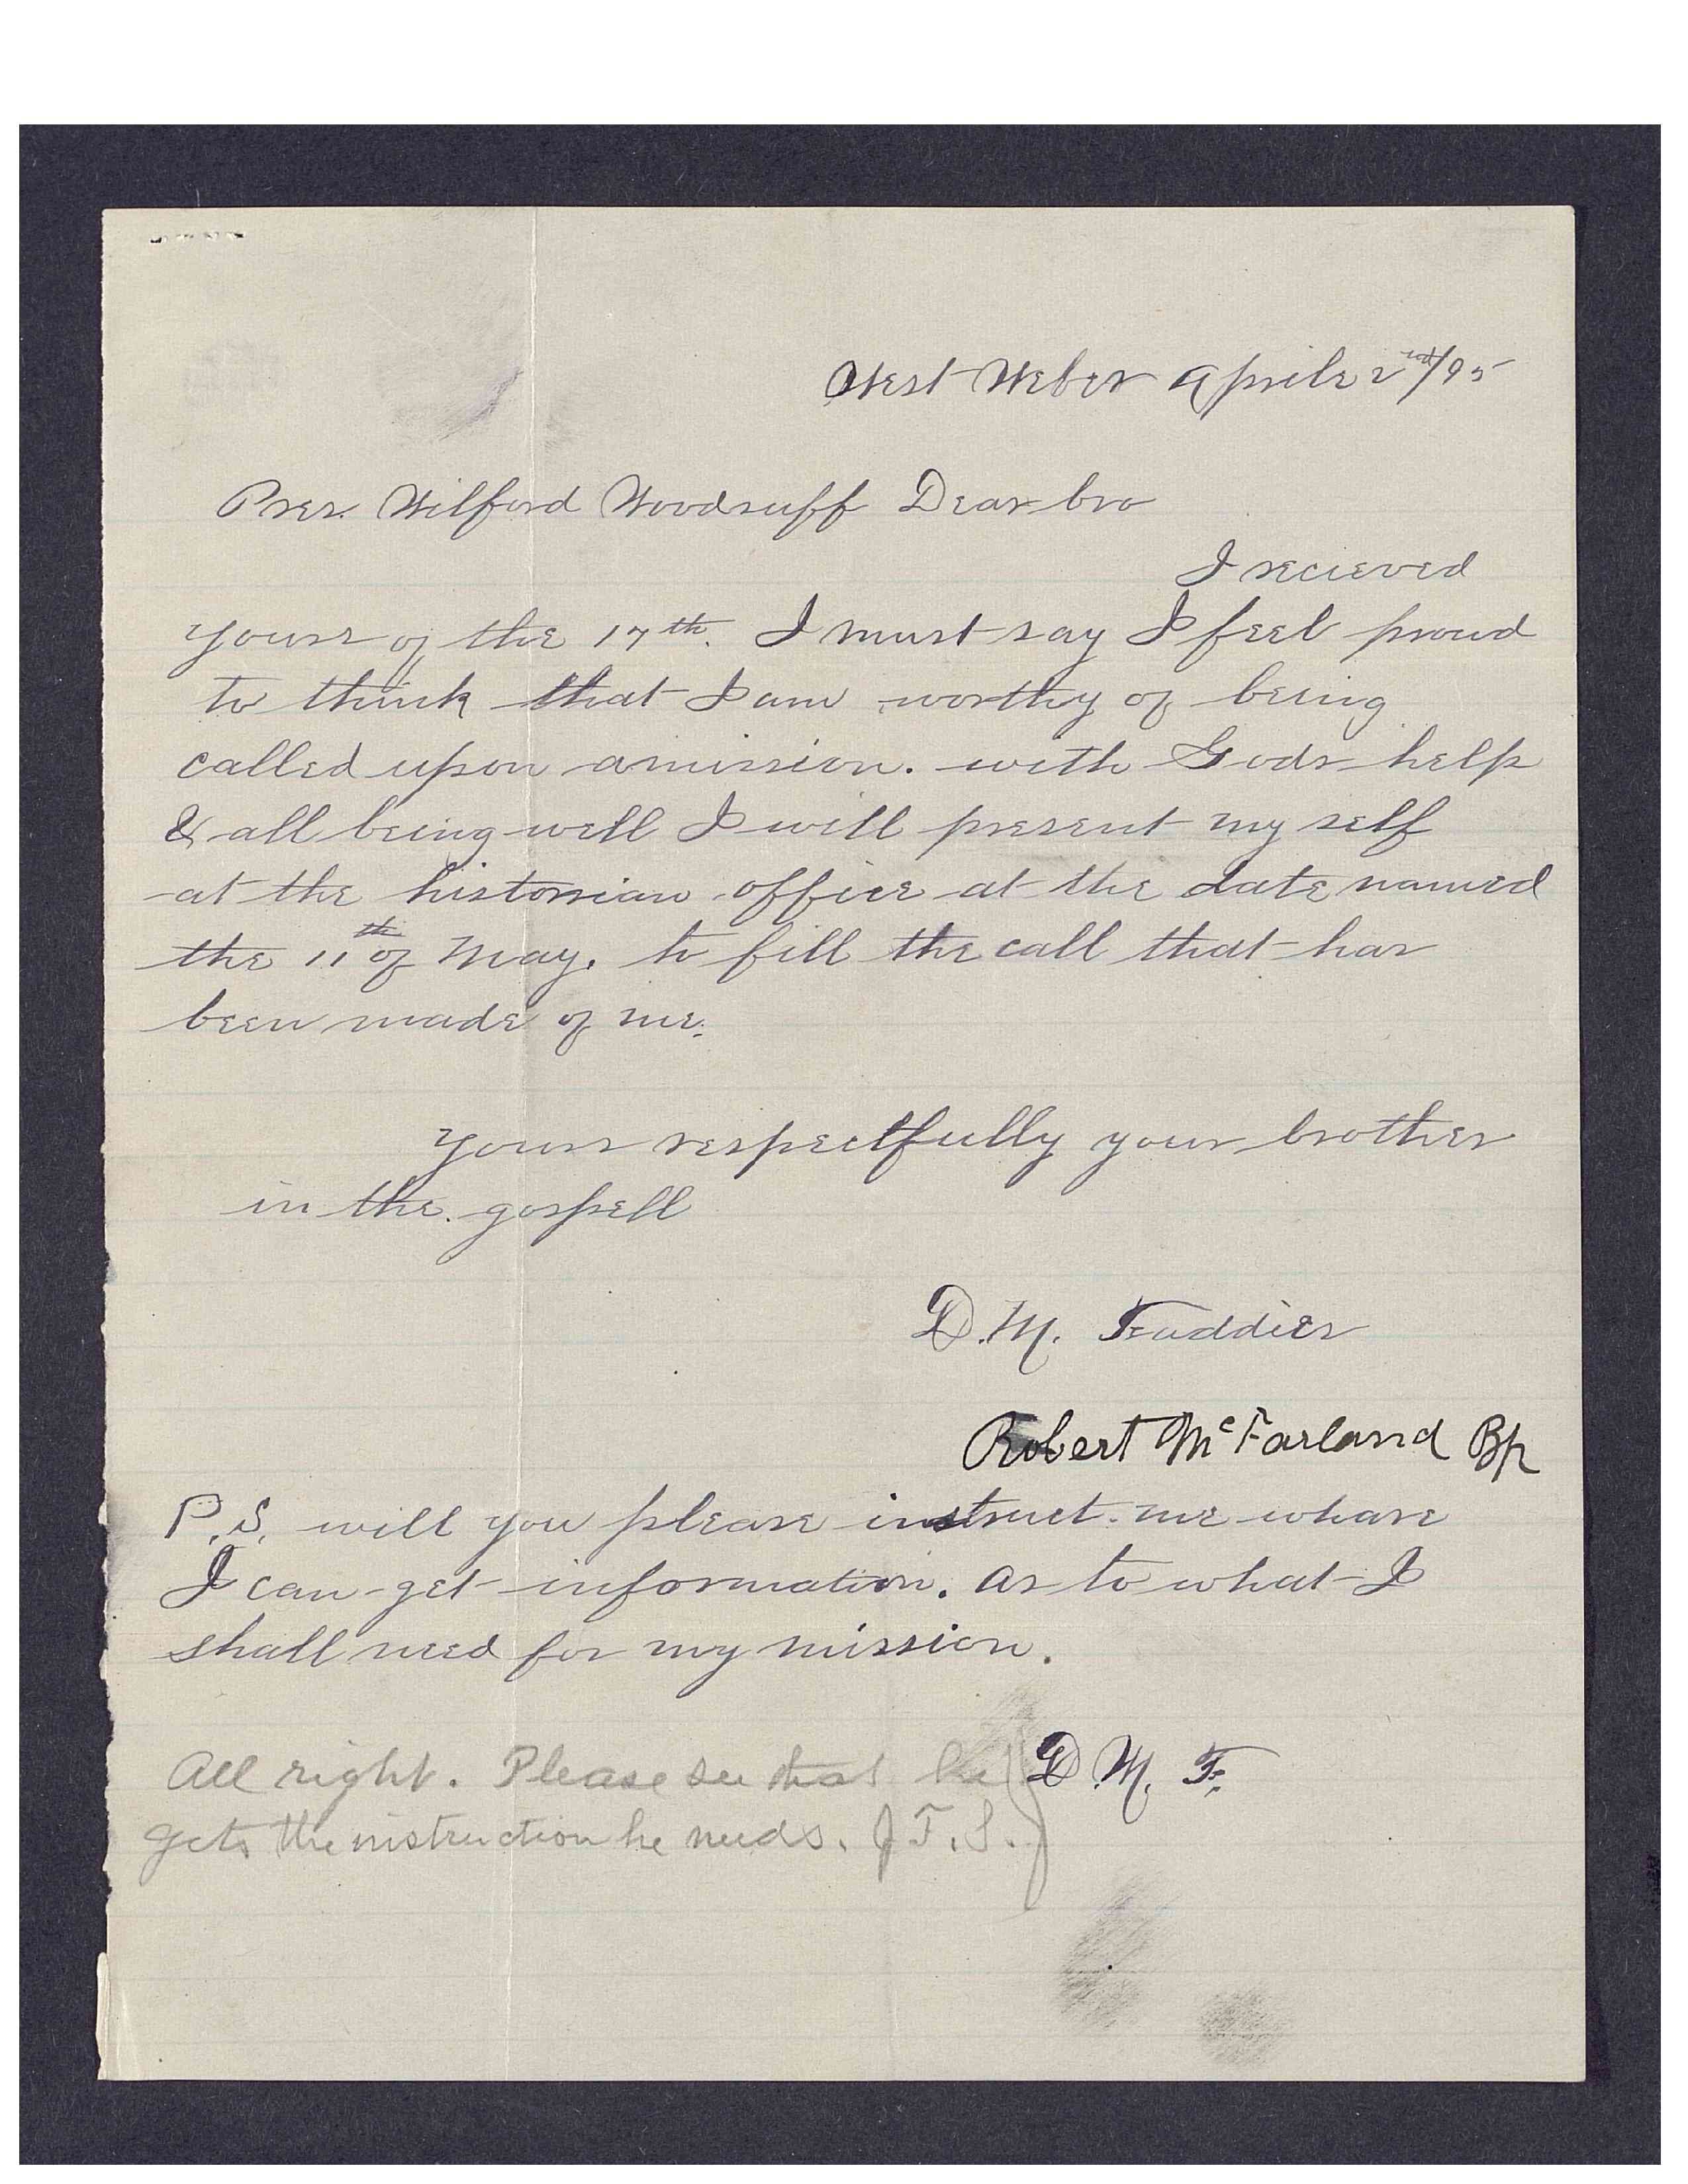 West Weber Aprile 2nd/95
Pres. Wilford Woodruff Dear bro
I recieved
yours of the 17th. I must say I feel proud
to think that I am worthy of being
called upon a mission. with Gods help
& all being well I will present my self
at the historian office at the date named
the 11th of May. to fill the call that has
been made of me.
yours respectfully your brother
in the gospell
D. M.
Robert McFarland Bp
P.S. will you please instruct me whare
I can get information. as to what I
shall need for my mission.
D. M. F.
All right. Please see that he
gets the instruction he needs. J. F. S.